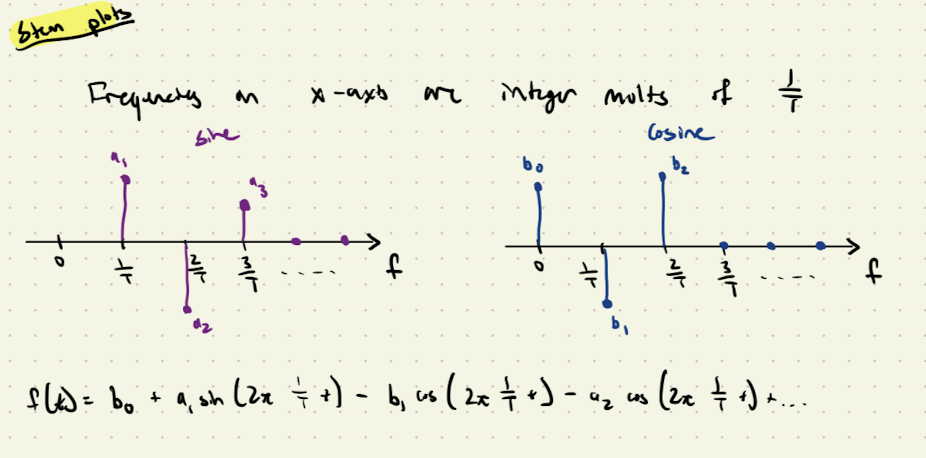 Stem plots
Frequencies on x-axis are integer mults of 1/T
Sine
a₁
a₃
0 1/T 2/T 3/T ..... f
a₂
Cosine
b₀
b₂
0 1/T 2/T 3/T ..... f
b₁
f(t) = b₀ + a₁ sin (2π 1/T t) - b₁ cos (2π 1/T t) - a₂ cos (2π 1/T t) + ...